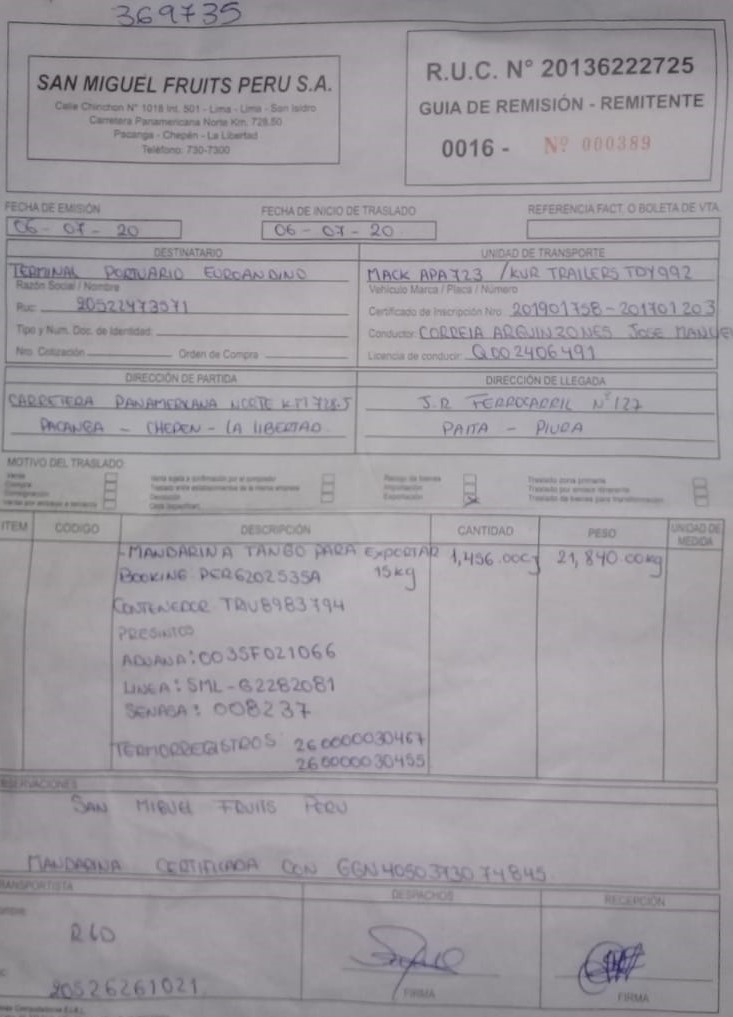 369735
SAN MIGUEL FRUITS PERU S.A.
Calle Chinchon N° 1018 Int. 501 - Lima - Lima - San Isidro
Carretera Panamericana Norte Km. 728.50
Pacanga - Chepén - La Libertad
Teléfono: 730-7300
R.U.C. N° 20136222725
GUIA DE REMISIÓN - REMITENTE
0016 - Nº 000389
FECHA DE EMISIÓN
06 - 07 - 20
FECHA DE INICIO DE TRASLADO
06 - 07 - 20
REFERENCIA FACT. O BOLETA DE VTA.
DESTINATARIO
TERMINAL PORTUARIO EUROANDINO
Razón Social / Nombre
Ruc: 20522473571
Tipo y Num. Doc. de Identidad:
Nro. Cotización Orden de Compra
UNIDAD DE TRANSPORTE
MACK APA723 / KUR TRAILERS TDY992
Vehículo Marca / Placa / Número
Certificado de Inscripción Nro. 201901758-201701203
Conductor: CORREIA ARGUINZONES JOSE MANUEL
Licencia de conducir: Q002406491
DIRECCIÓN DE PARTIDA
CARRETERA PANAMERICANA NORTE KM 728.5
PACANGA - CHEPEN - LA LIBERTAD
DIRECCIÓN DE LLEGADA
J.R FERROCARRIL N° 127
PAITA - PIURA
MOTIVO DEL TRASLADO
Venta
Compra
Consignación
Venta sujeta a confirmación por el comprador
Traslado entre establecimientos de la misma empresa
Devolución
Recojo de bienes
Importación
Exportación
Traslado zona primaria
Traslado por emisor itinerante
Traslado de bienes para transformación
ITEM CODIGO DESCRIPCIÓN CANTIDAD PESO UNIDAD DE MEDIDA
-MANDARINA TANGO PARA EXPORTAR 1,456.00 21,840.00kg
BOOKING PER6202535A 15kg
CONTENEDOR TRIU8983794
PRESINTOS
ADUANA: 003SF021066
LINEA: SML-G2282081
SENASA: 008237
TERMORREGISTROS: 260000030467
260000030455
OBSERVACIONES
SAN MIGUEL FRUITS PERU
MANDARINA CERTIFICADA CON GGN 4050373074845
TRANSPORTISTA
DESPACHOS
RECEPCIÓN
20526261021
FIRMA
FIRMA